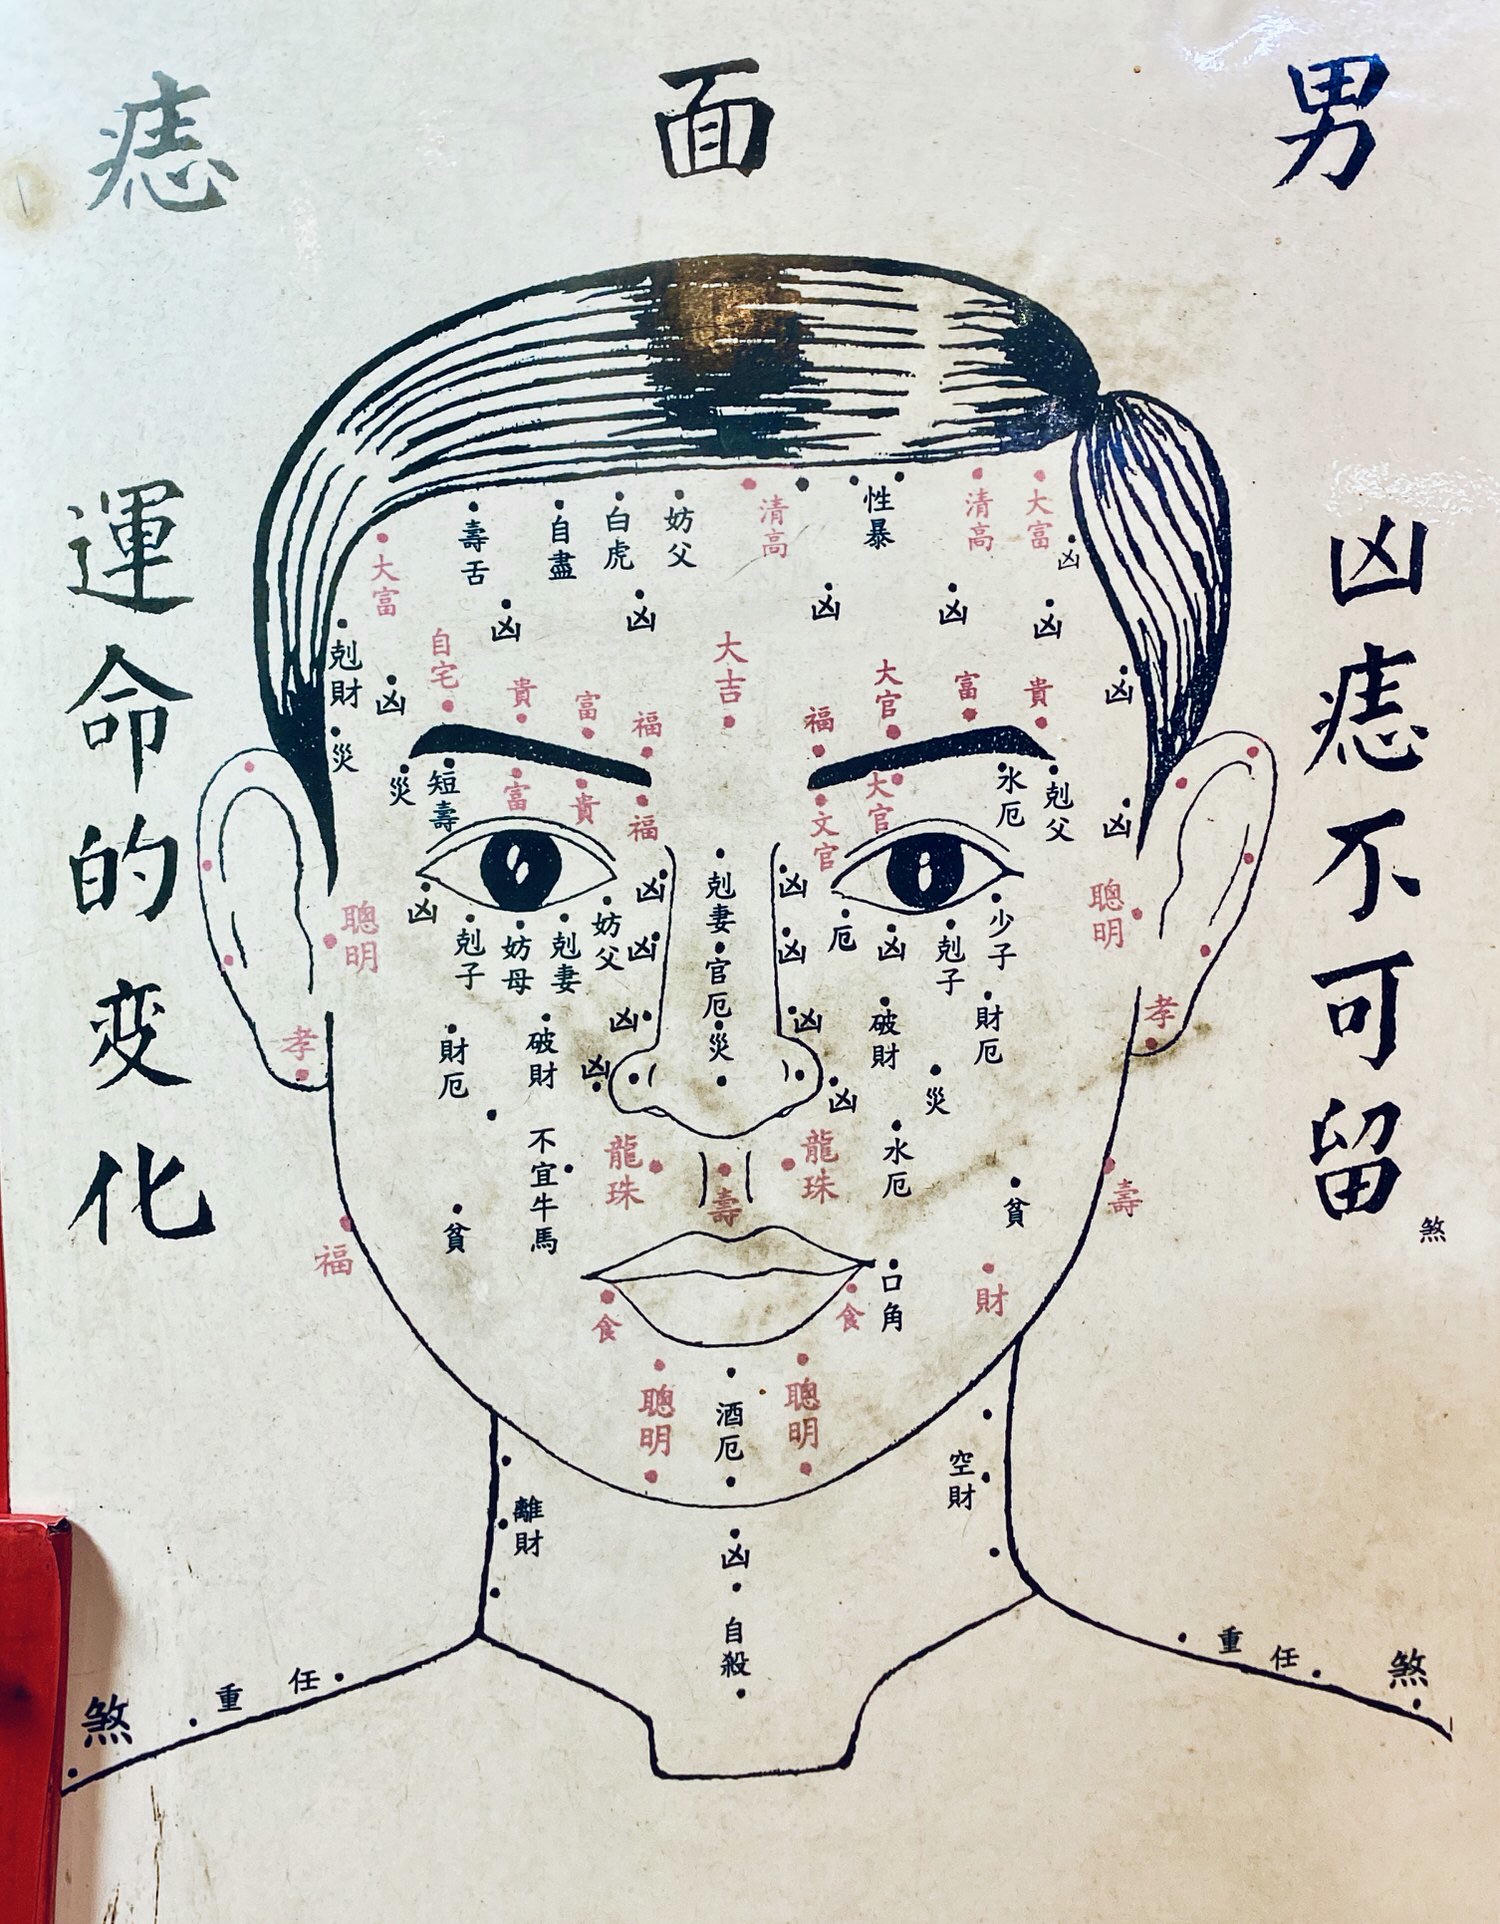 男面痣
凶痣不可留
運命的変化
煞
大富
清高
性暴
清高
妨父
白虎
自盡
壽舌
大富
凶
凶
凶
凶
凶
凶
剋財
凶
自宅
貴
富
福
大吉
福
大官
富
貴
凶
災
災
短壽
富
貴
福
文官
大官
水厄
剋父
凶
聰明
凶
剋子
妨母
剋妻
妨父
凶
凶
剋妻
官厄
災
凶
凶
厄
凶
剋子
少子
聰明
孝
孝
財厄
破財
凶
凶
凶
凶
破財
財厄
災
不宜牛馬
龍珠
壽
龍珠
水厄
貧
貧
福
壽
食
食
口角
財
聰明
酒厄
聰明
離財
空財
凶
自殺
煞
重任
重任
煞